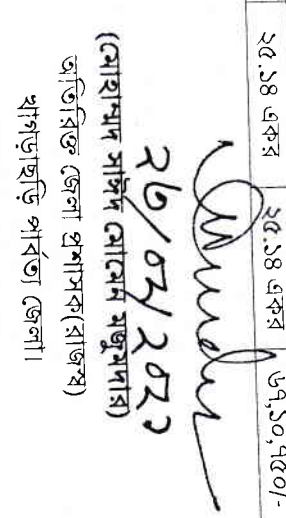 ২৫.১৪ একর ২৫.১৪ একর ৬৭,১০,৭৫০/-
২৬/০৭/২০২১
(মোহাম্মদ সাঈদ মোমেন মজুমদার)
অতিরিক্ত জেলা প্রশাসক(রাজস্ব)
খাগড়াছড়ি পার্বত্য জেলা।